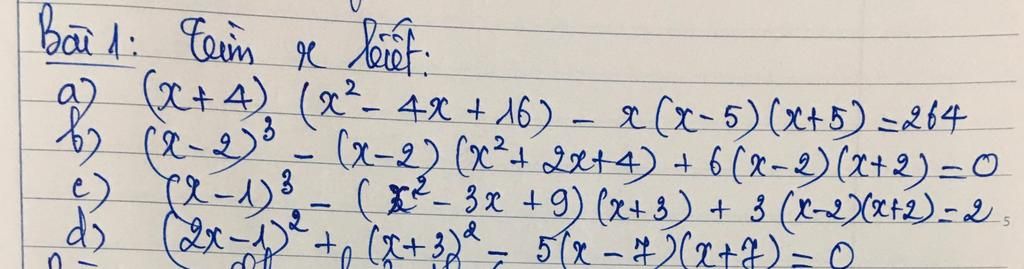 Bài 1: Tìm x biết:
a) (x + 4) (x² - 4x + 16) - x(x-5)(x+5) = 264
b) (x-2)³ - (x-2)(x² + 2x+4) + 6(x-2)(x+2) = 0
c) (x-1)³ - (x² - 3x + 9)(x+3) + 3(x-2)(x+2) = 2
d) (2x-1)² + (x+3)² - 5(x-7)(x+7) = 0